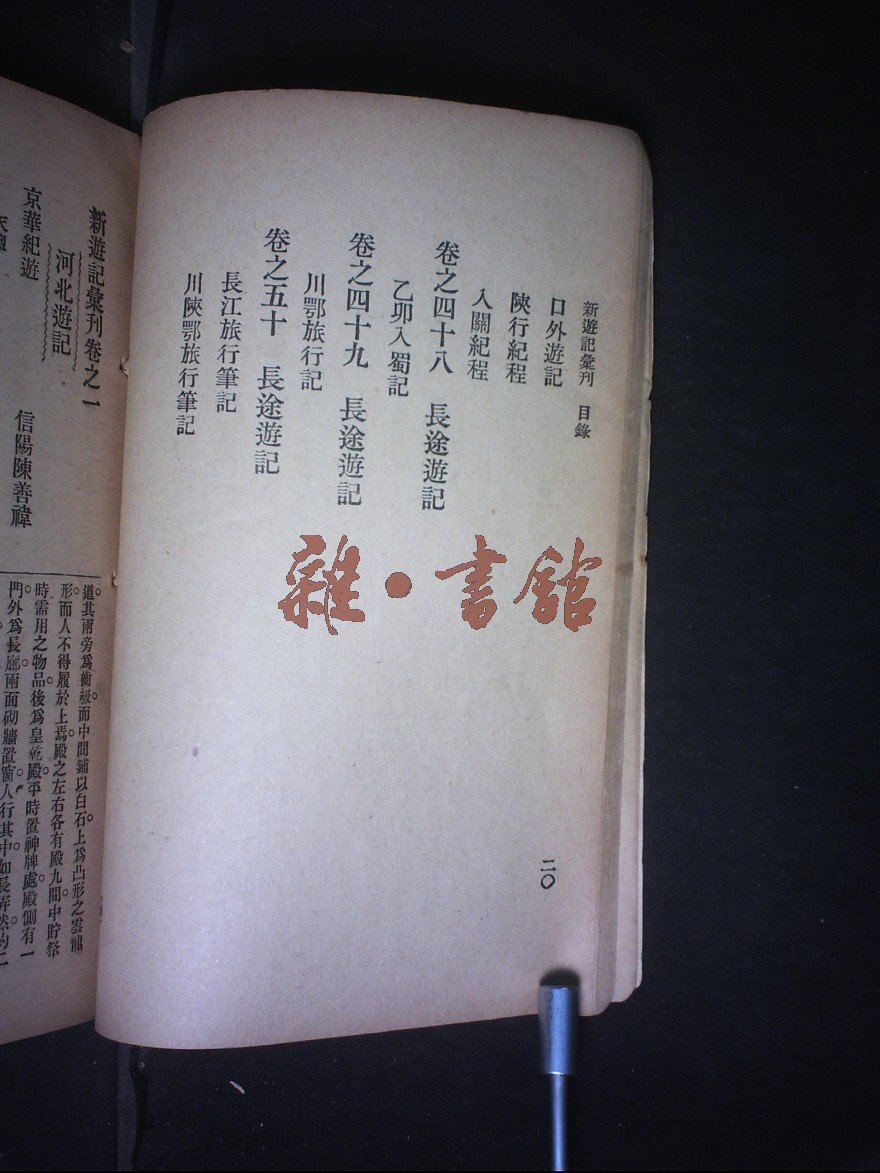 新遊記彙刊　目錄
口外遊記
陝行紀程
入關紀程
卷之四十八　長途遊記
乙卯入蜀記
卷之四十九　長途遊記
川鄂旅行記
卷之五十　長途遊記
長江旅行筆記
川陝鄂旅行筆記
二〇
雜·書館
新遊記彙刊卷之一
河北遊記
京華紀遊
信陽陳善禕
道其兩旁爲衞級而中間鋪以白石。上爲凸形之雲龍
形而人不得履於上焉。殿之左右各有殿九間。中貯祭
時需用之物品。後爲皇乾殿。平時置神牌處。殿側有一
門外爲長廊。兩面砌牆置窗。人行其中。如長弄